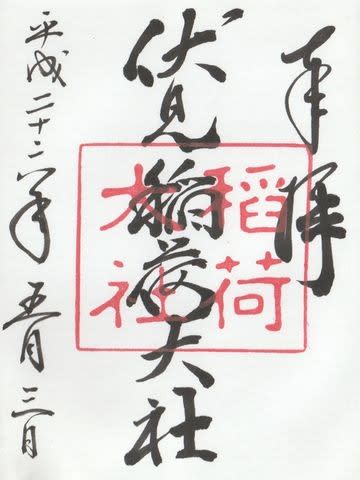 奉拝
伏見稲荷大社
稲荷
大社
平成二十二年五月三日